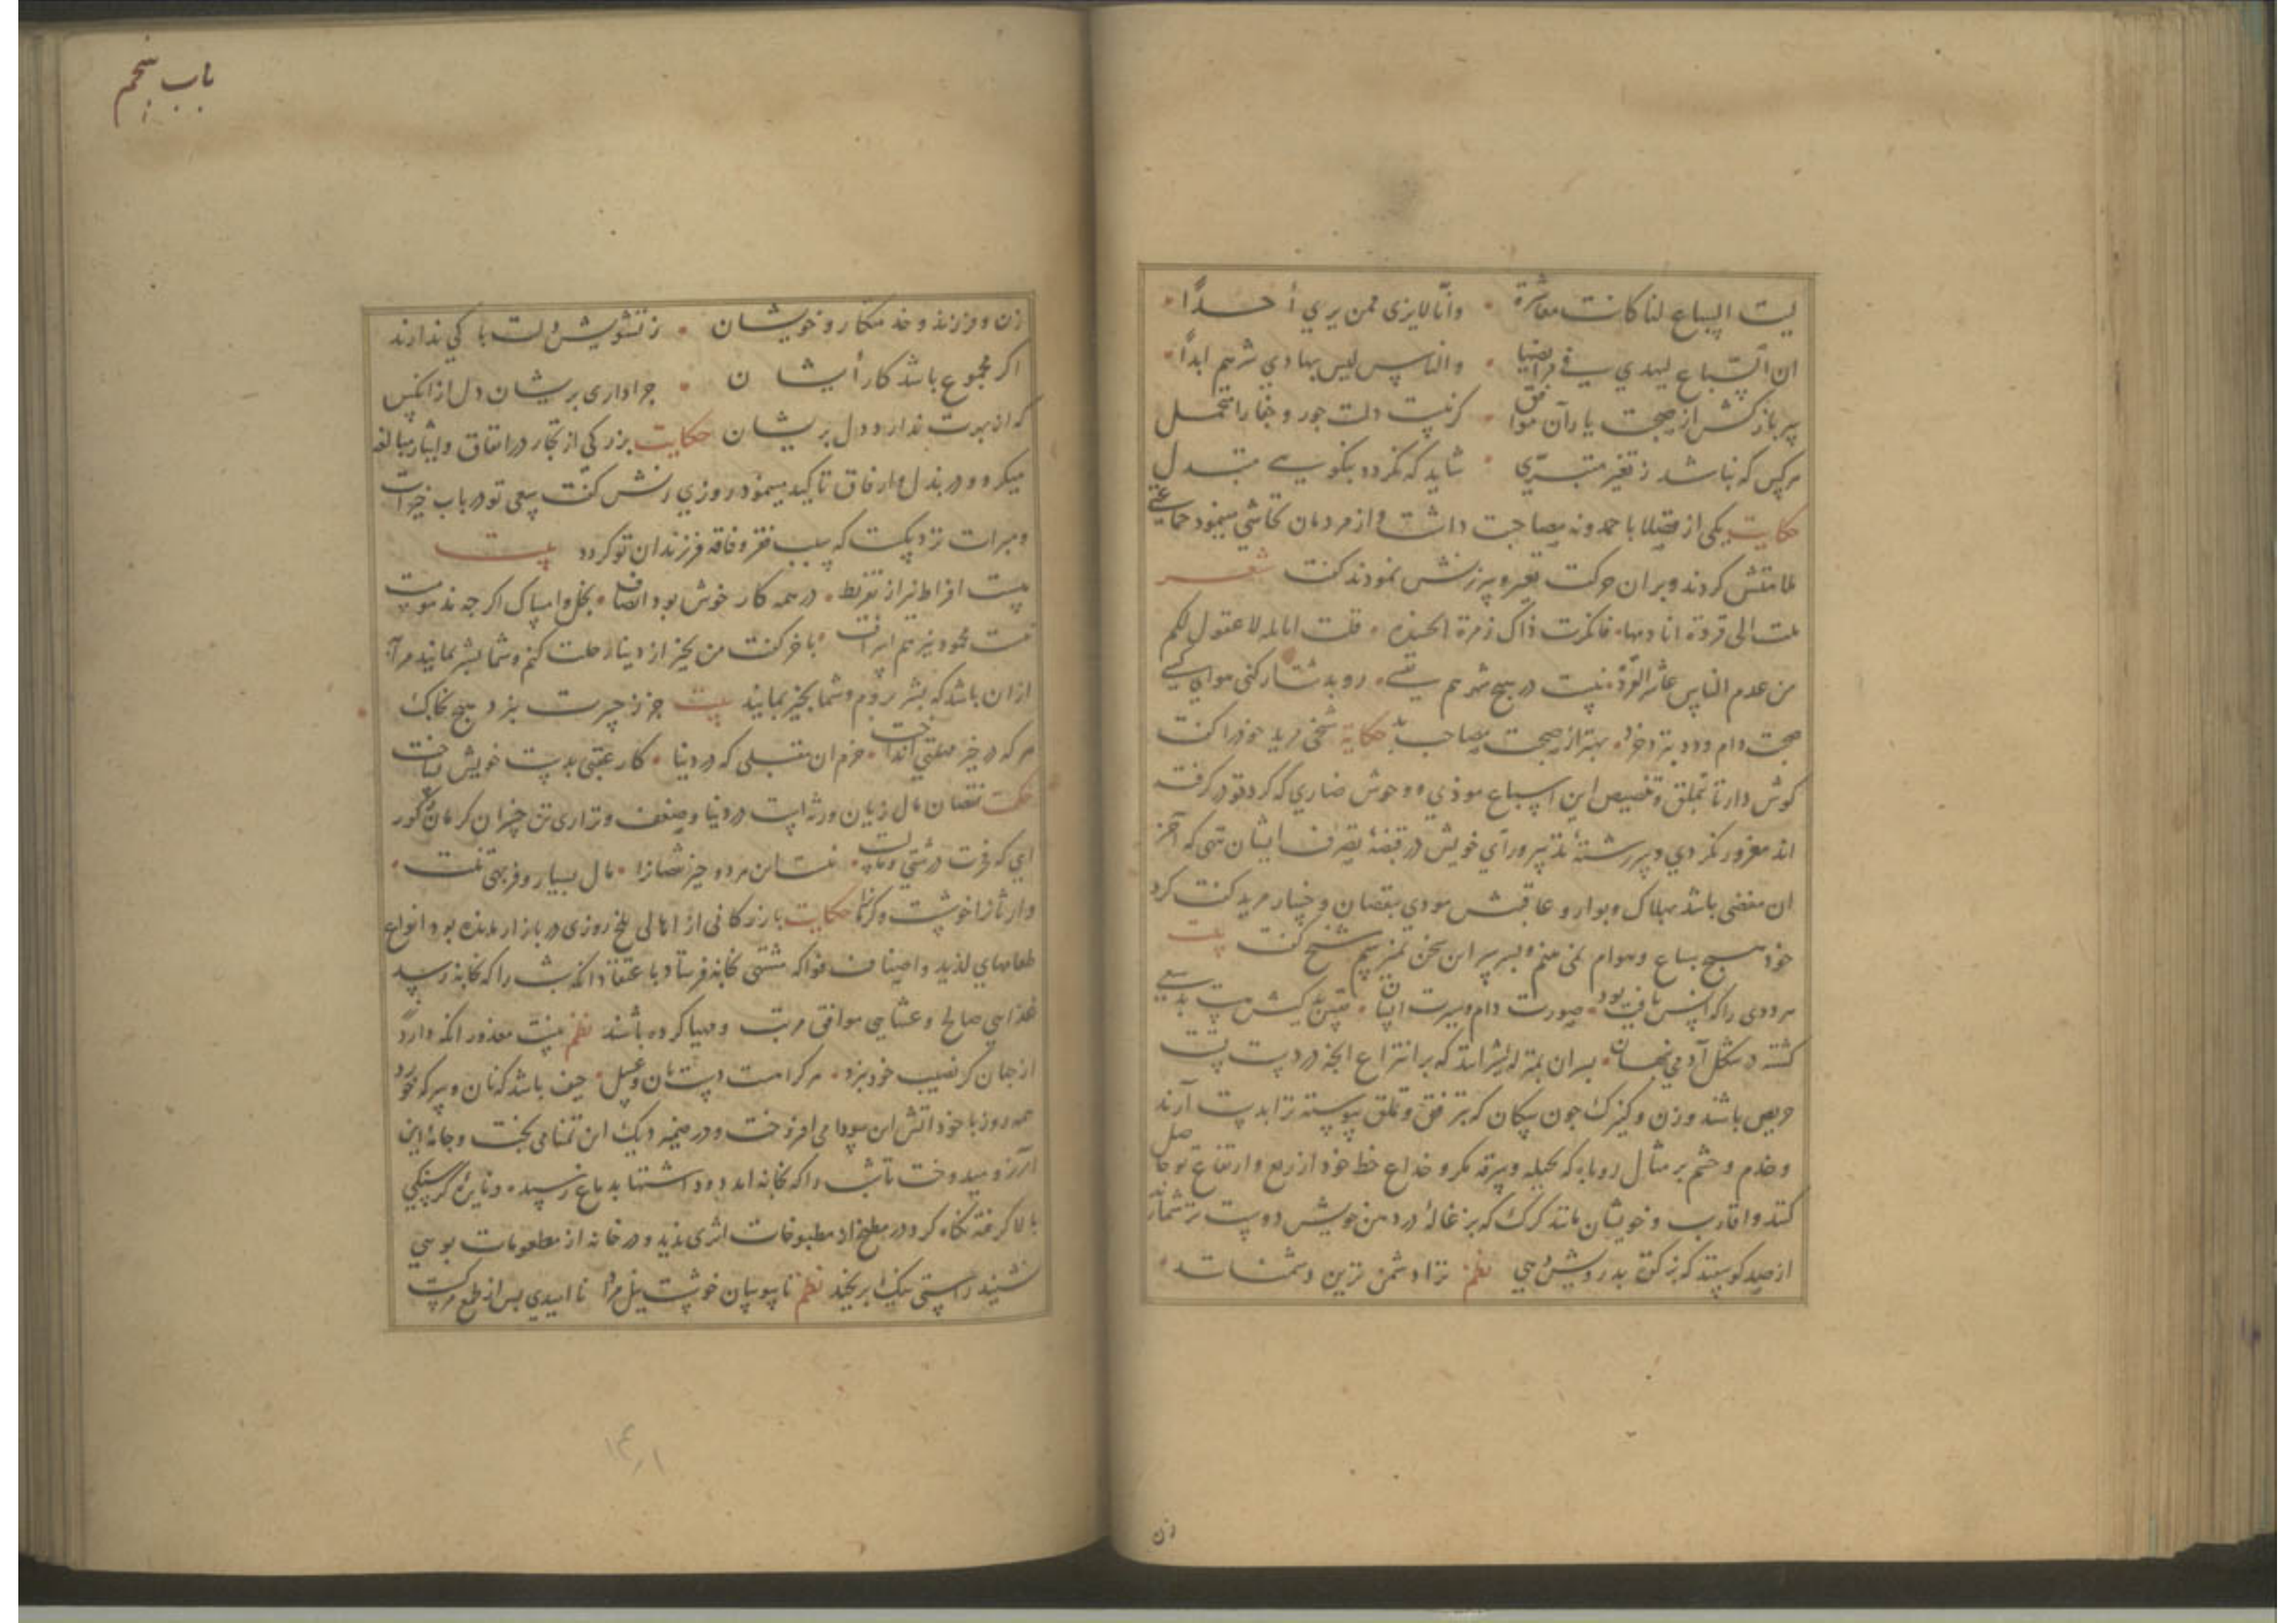 لیت السباع لنا کانت معاشرة • وانّا لانری ممن یری أحداً •
ان السباع لیهدی فی فرایضها • والناس لیس بهادی شرهم ابداً •
سر باز کش از صحبت یاران موافق • کر نیست دلت جور و جفا را متحمل
هرکس که نباشد ز تغیر متبرّی • شاید که نکردد بنکویی متبدل
حکایت یکی از فضلا با حمدونه مصاحبت داشت و از مردمان تحاشی مینمود جماعتی
ملامتش کردند و بران حرکت تعیر و سرزنش نمودند کفت شعر
ملت الی قردة انادمها • فانکرت ذاک زمرة الحسده • قلت لا عقول لکم
من عدم الناس عاشر القرده • نیست در هیچ شهر هم نفسی • رو بدشت ار کنی هوای کسی
صحبت دام و دد بنزد خرد • بهتر از صحبت مصاحب بد حکایة شخی مرید خود را کفت
کوش دار تا بتملق و تبصیص این سباع موذی و وحوش ضاری که کرد تو در کرفته
اند مغرور نکردی و سر رشتهٔ تدبیر و رأی خویش در قبضهٔ تصرف ایشان ننهی که آخر
ان مفضی باشد بهلاک و بوار و عاقبتش مودی بنقصان و خسار مرید کفت کرد
خود هیچ سباع و هوام نمی بینم و بسر این سخن نمیرسم شیخ کفت بیت
مردمی را که انس یافی بود • صورت دام و سیرت انسان •
کشته در شکل آدمی نهان • پسران بمنزلهٔ شیر اند که بر انتزاع آنچه در دست تست
حریص باشند و زن و کنیزک چون سکان که بترفق و تملق پیوسته ترا بدست آرند
و خدم و حشم بر مثال روباه که بحیله و سرقه و مکر و خداع حظ خود از ریع و ارتفاع تو حاصل
کنند و اقارب و خویشان مانند کرک که بزغاله در دهن خویش دوست تر شمارد
از صد کوسپند که نزد درویشی نظم ترا دشمن ترین دشمنانند •
زن
باب پنجم
زن و فرزند و خدمتکار و خویشان • ز تشویش دلت باکی ندارند
اکر مجموع باشد کار ایشان • چرا داری پریشان دل از انکس
که از بهرت ندارد دل پریشان حکایت بزرکی از تجار در انفاق و ایثار مبالغه
میکرد و در بذل و ارفاق تاکید مینمود روزی زنش کفت سعی تو در باب خیرات
و مبرات نزدیکست که سبب فقر و فاقهٔ فرزندان تو کردد بیت
نیست افراط به از تفریط • در همه کار خوش بود انصاف • بخل و امساک اکرچه مذمومست
نیست محمود نیز هم اسراف • باخر کفت من بخیر از دنیا رحلت کنم و شما بشر بمانید مرا به
ازان باشد که بشر بروم و شما بخیر بمانید بیت جز ز حسرت نبرد هیچ بخاک
هرکه در خیر نعمتی انداخت • خرم ان مقبلی که در دنیا • کار عقبی بدست خویش بساخت
حکمت نقصان مال زیان ورثه است در دنیا و ضعف و نزاری تن خسران کرمان کور
ای که فربت درشتی و مالست • نیست این هر دو جز نقصانرا • مال بسیار و فربهی تنت •
وارثانرا خوشست و کرمانرا حکایت بازرکانی از اهالی بلخ روزی در بازار مانده بود انواع
طعامهای لذیذ و اصناف فواکه مشتهی بخانه فرستاد باعتقاد انکه شب را که بخانه رسد
غذایی صالح و عشایی موافق مرتب و مهیا کرده باشند نظم نیست معذور انکه دارد
از جهان کر نصیب خود نبرد • هر کرا هست دست نان و عسل • حیف باشد که نان و سرکه خورد
همه روز با خود اتش این سودا می افروخت و در ضمیر دیک این تمنا می پخت و جامهٔ این
ارزو میدوخت تا شب را که بخانه امد دود اشتها بدماغ رسیده و نایرهٔ کرسنکی
بالا کرفته نکاه کرد در مطبخ از مطبوخات اثری ندید و در خانه از مطعومات بویی
نشنید راستی نیک برنجید نظم ناپوسان خوشست نیل مراد نا امیدی پس از طمع مرکست
۱۴۱